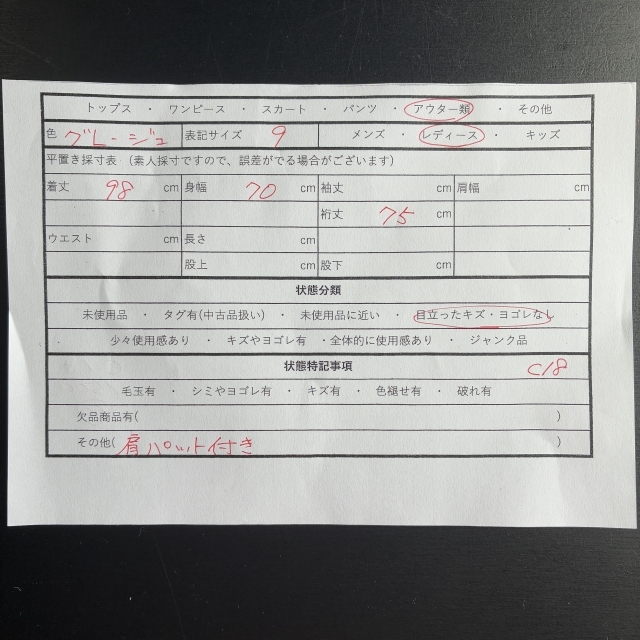 トップス ・ ワンピース ・ スカート ・ パンツ ・ アウター類 ・ その他
色 グレージュ 表記サイズ 9 メンズ ・ レディース ・ キッズ
平置き採寸表（素人採寸ですので、誤差がでる場合がございます）
着丈 98 cm 身幅 70 cm 袖丈 cm 肩幅 cm
裄丈 75 cm
ウエスト cm 長さ cm
股上 cm 股下 cm
状態分類
未使用品 ・ タグ有(中古品扱い) ・ 未使用品に近い ・ 目立ったキズ・ヨゴレなし
少々使用感あり ・ キズやヨゴレ有 ・全体的に使用感あり ・ ジャンク品
状態特記事項 C18
毛玉有 ・ シミやヨゴレ有 ・ キズ有 ・ 色褪せ有 ・ 破れ有
欠品商品有( )
その他( 肩パット付き )